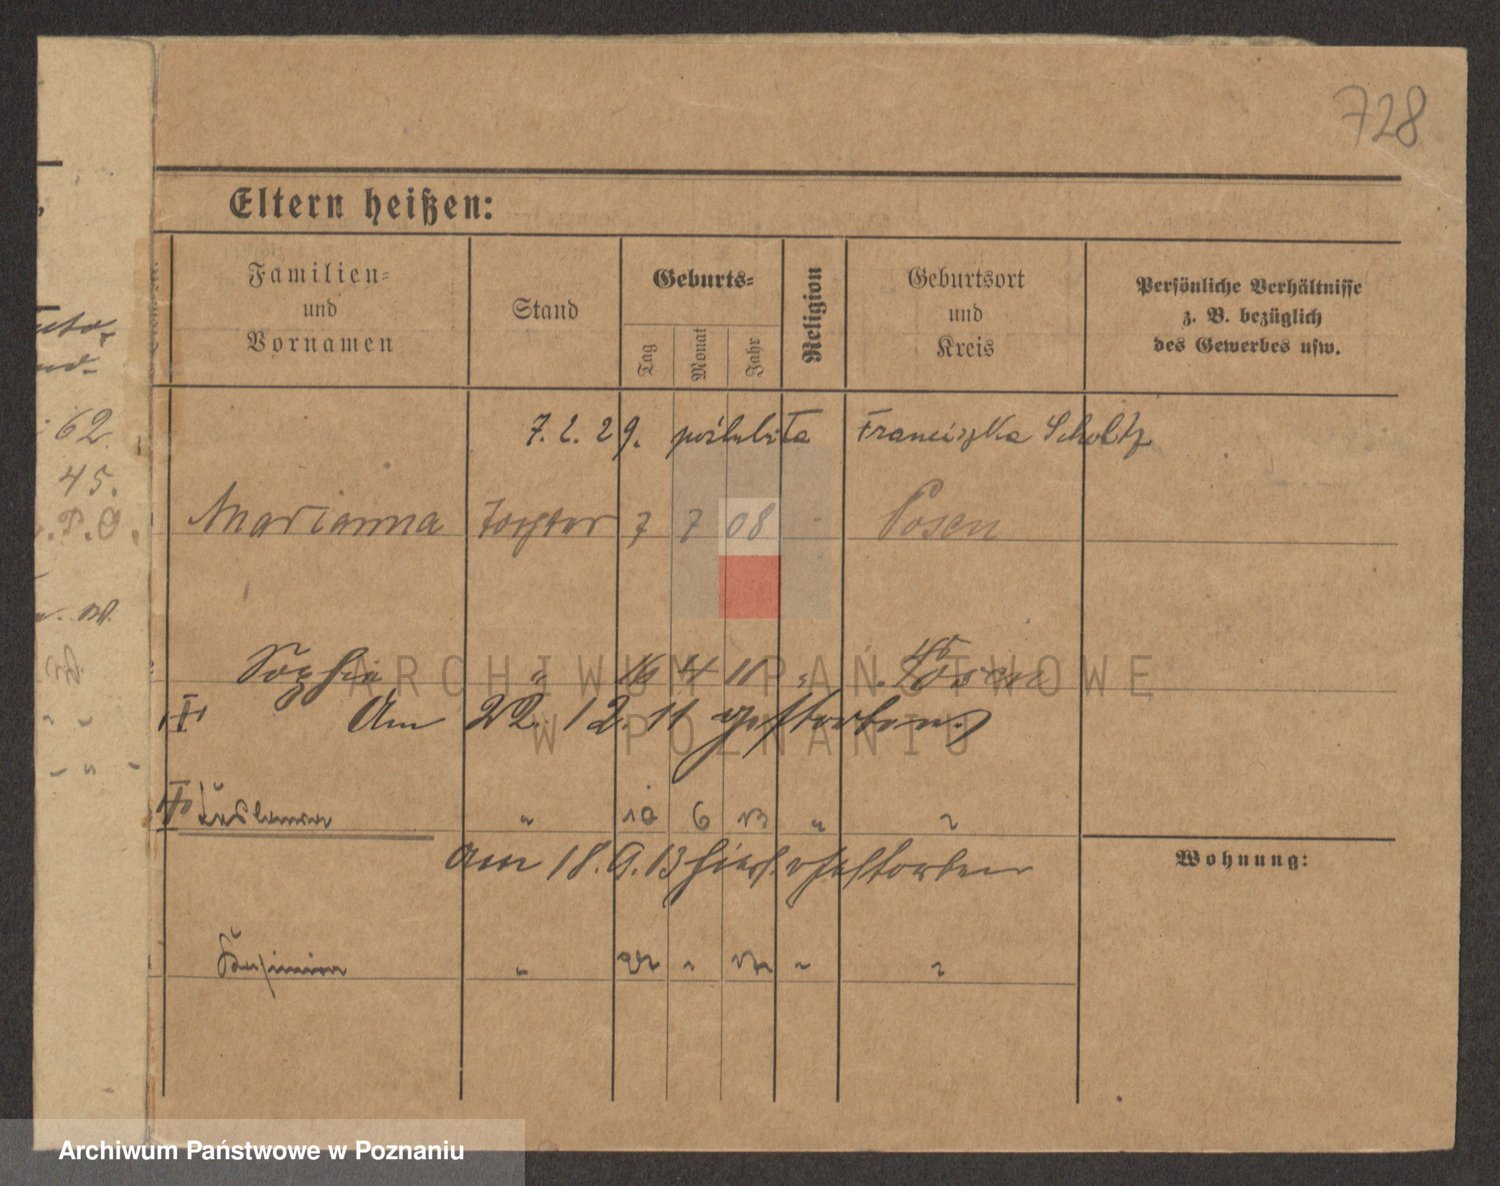 728
Eltern heißen:
Familien-
und
Vornamen
Stand
Geburts-
Tag
Monat
Jahr
Religion
Geburtsort
und
Kreis
Persönliche Verhältnisse
z. B. bezüglich
des Gewerbes usw.
62.
45.
P.O.
7. 2. 29. poślubiła Franciszka Scholtz
Marianna Tochter 7 7 08 Posen
Sophia " 16 4 11 " Posen
Am 22. 12. 11 gestorben.
" 10 6 13 "
Am 18. 9. 13 hier gestorben
Kasimira "
Wohnung:
ARCHIWUM PAŃSTWOWE
W POZNANIU
Archiwum Państwowe w Poznaniu